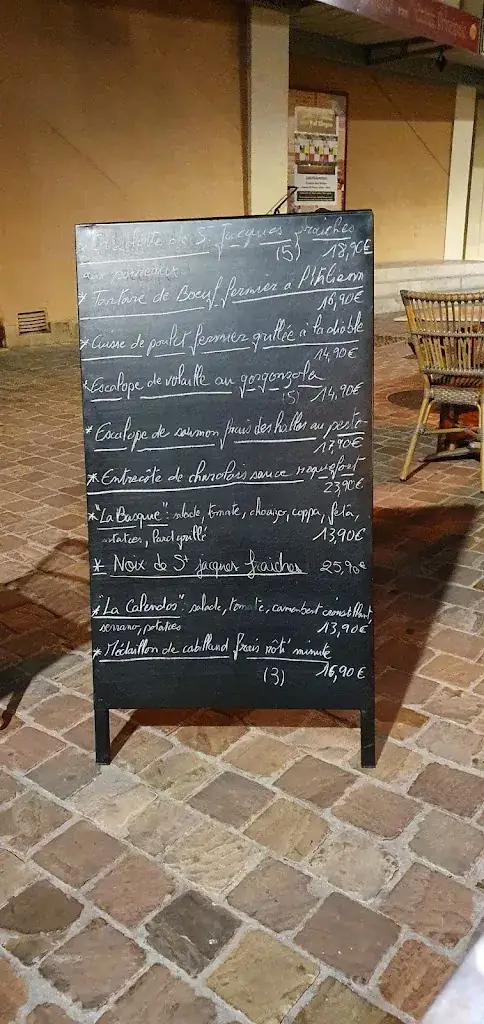 de St Jacques fraîches
(5) 18,90€
aux poireaux
* Tartare de Boeuf fermier à l'italienn
16,90€
* Cuisse de poulet fermier grillée à la diable
14,90€
* Escalope de volaille au gorgonzola
(5) 14,90€
* Escalope de saumon frais des halles au pesto
17,90€
* Entrecôte de charolais sauce roquefort
23,90€
* "La Basque": salade, tomate, chorizo, coppa, feta,
patates, lard grillé 13,90€
* Noix de St jacques fraîches 25,90€
* "La Calendos" salade, tomate, camembert croustillant,
serrano, patates 13,90€
* Médaillon de cabillaud frais rôti minute
(3) 16,90€